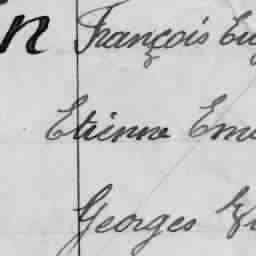 n François Eug
Etienne Eme
Georges